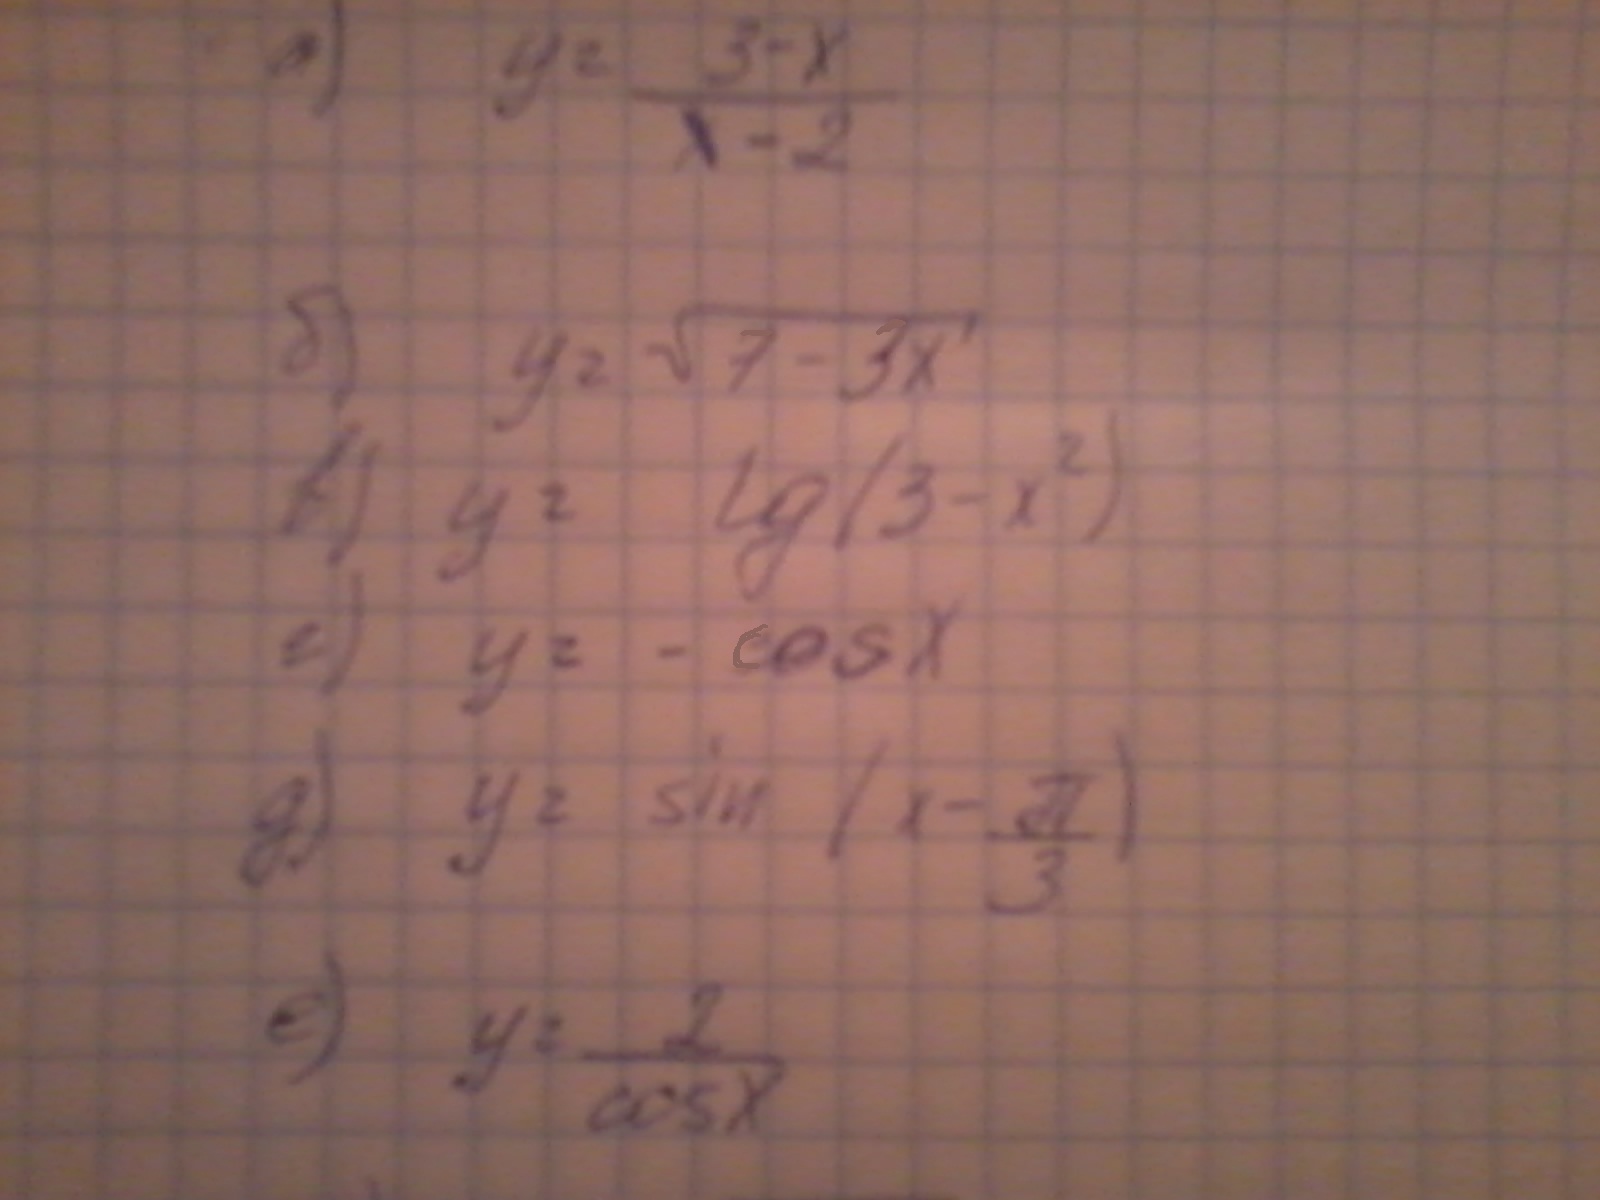 а) y = (3-x)/(x-2)
б) y = √(7-3x)
в) y = lg(3-x²)
г) y = - cosx
д) y = sin (x - π/3)
е) y = 2/cosx